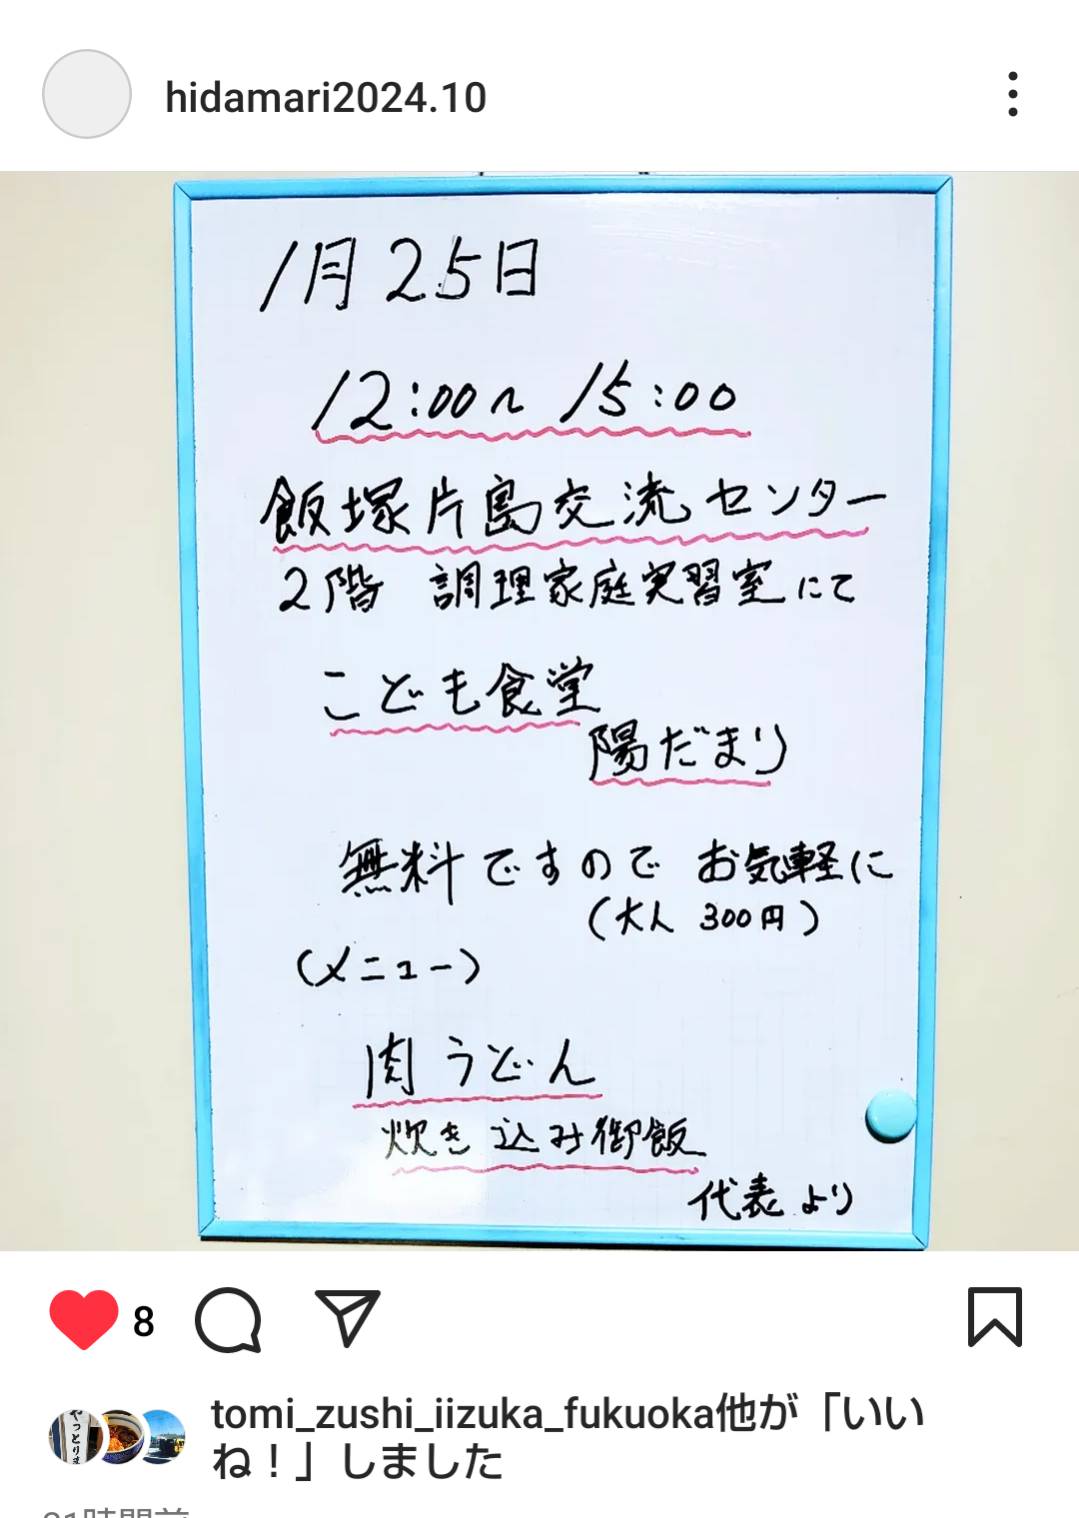 hidamari2024.10
1月25日
12:00〜15:00
飯塚片島交流センター
2階 調理家庭実習室にて
こども食堂
陽だまり
無料ですので お気軽に
(大人 300円)
(メニュー)
肉うどん
炊き込み御飯
代表より
8
tomi_zushi_iizuka_fukuoka他が「いい
ね！」しました